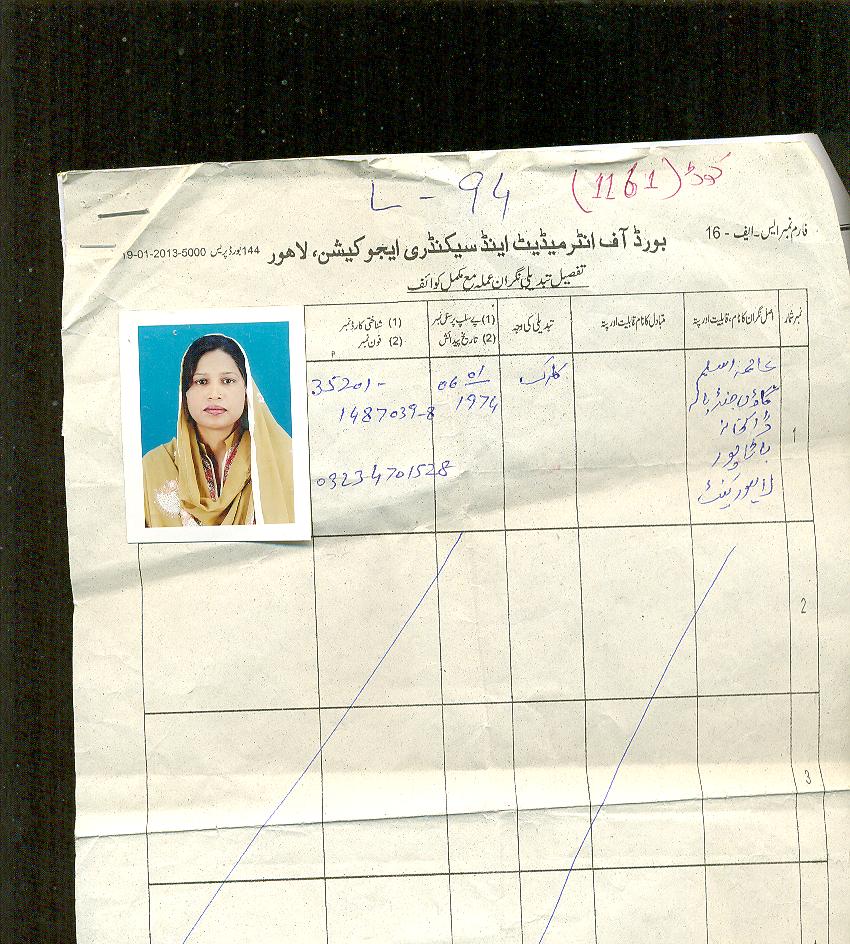 L - 94
کوڈ (1161)
فارم نمبر ایس۔ایف - 16
بورڈ آف انٹرمیڈیٹ اینڈ سیکنڈری ایجوکیشن، لاهور
144 بورڈ پریس 5000-2013-01-19
تفصیل تبدیلی نگران عملہ مع مکمل کوائف
نمبر شمار
اصل نگران کا نام، قابلیت اور پتہ
متبادل کا نام قابلیت اور پتہ
تبدیلی کی وجہ
(1) پے سلپ پرسنل نمبر
(2) تاریخ پیدائش
(1) شناختی کارڈ نمبر
(2) فون نمبر
1
اسلم
گاؤں
ڈاکخانہ
باٹا پور
لاہور کینٹ
کلرک
06 01
1974
35201-
1487039-8
0323-4701528
2
3